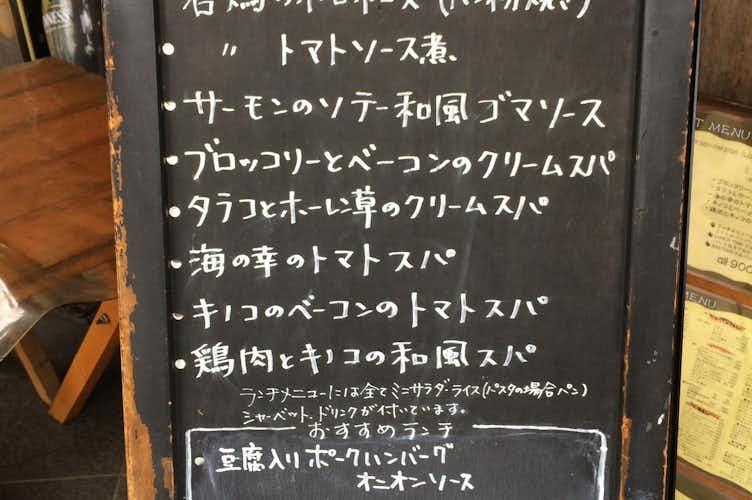 若鶏のボロネーズ(パン粉焼き)
• 〃 トマトソース煮.
• サーモンのソテー和風ゴマソース
• ブロッコリーとベーコンのクリームスパ
• タラコとホーレン草のクリームスパ
• 海の幸のトマトスパ
• キノコのベーコンのトマトスパ
• 鶏肉とキノコの和風スパ
ランチメニューには全てミニサラダ・ライス(パスタの場合パン)
シャーベット、ドリンクが付いています。
おすすめランチ
• 豆腐入りポークハンバーグ
オニオンソース
T MENU
all 900
MENU